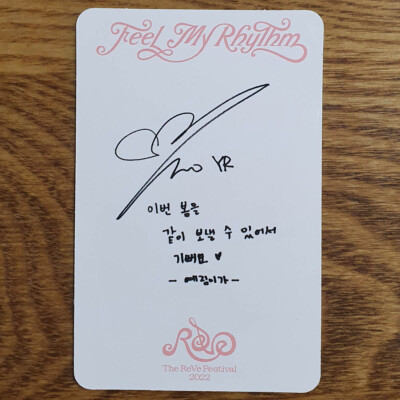 Feel My Rhythm
YR
이번 봄을
같이 보낼 수 있어서
기뻐요 ♥
- 예림이가 -
ReVe
The ReVe Festival
2022